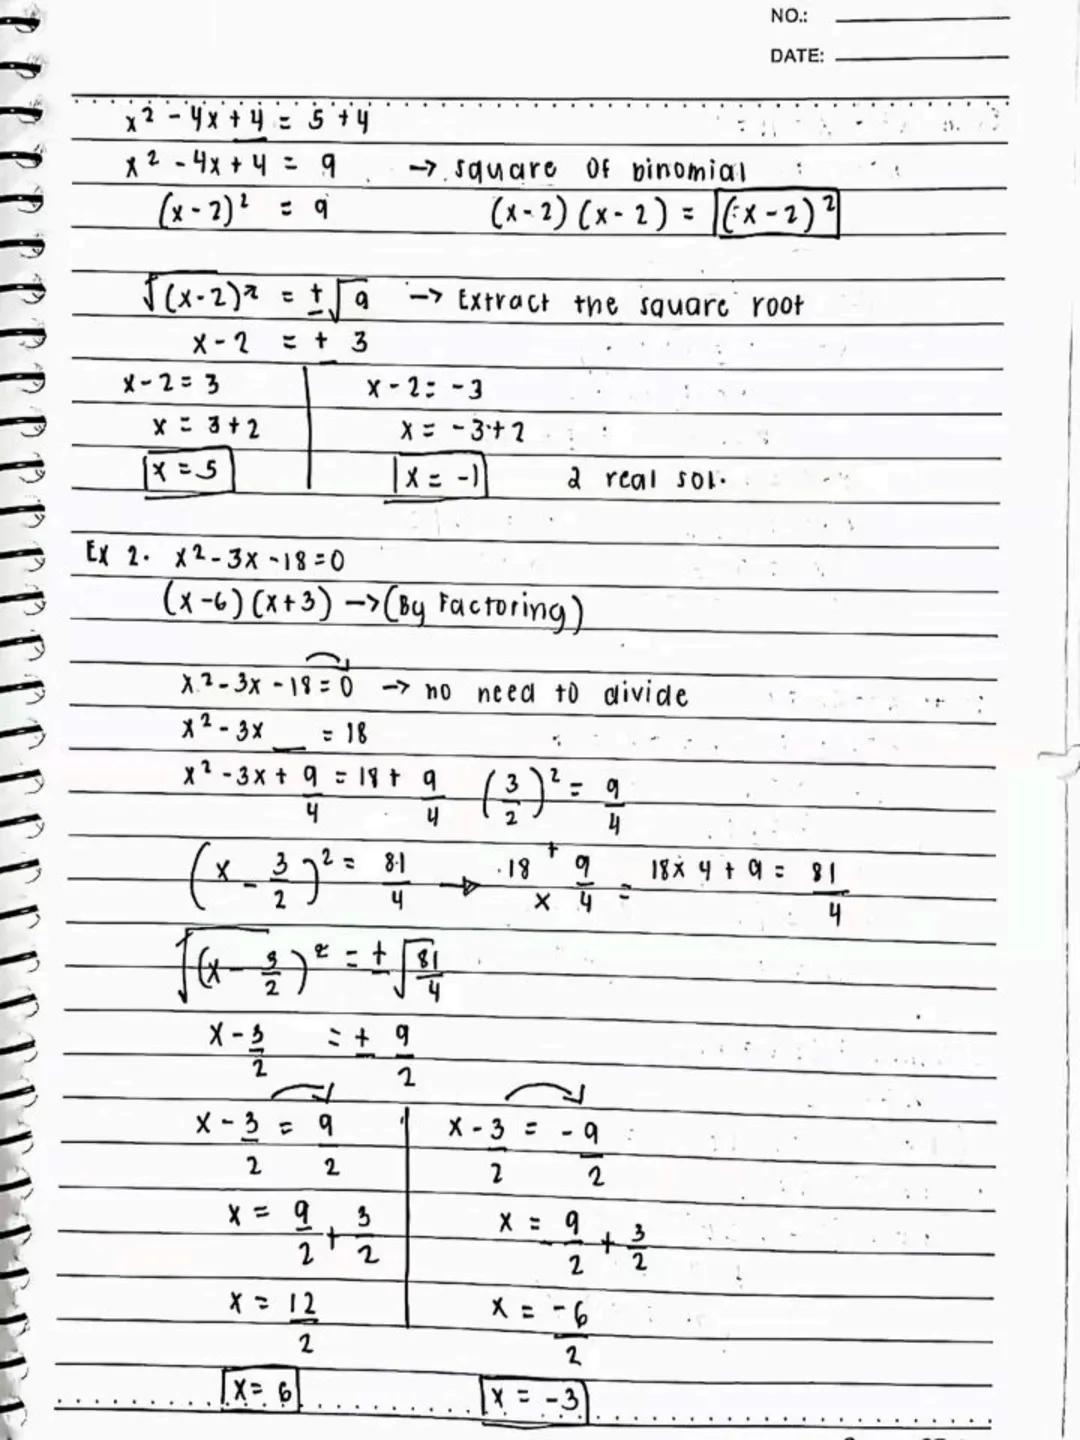 NO.:
DATE:
x² - 4x + 4 = 5 + 4
x² - 4x + 4 = 9 → square of binomial
(x - 2)² = 9 (x - 2) (x - 2) = (x - 2)²
√(x - 2)² = ± √9 → Extract the square root
x - 2 = ± 3
x - 2 = 3 x - 2 = -3
x = 3 + 2 x = -3 + 2
x = 5 x = -1 2 real sol.
Ex 2. x² - 3x - 18 = 0
(x - 6) (x + 3) → (By Factoring)
x² - 3x - 18 = 0 → no need to divide
x² - 3x __ = 18
x² - 3x + 9/4 = 18 + 9/4 (3/2)² = 9/4
(x - 3/2)² = 81/4 → 18 + x 9/4 = 18 x 4 + 9 = 81/4
√(x - 3/2)² = ± √81/4
x - 3/2 = ± 9/2
x - 3/2 = 9/2 x - 3/2 = - 9/2
x = 9/2 + 3/2 x = - 9/2 + 3/2
x = 12/2 x = -6/2
x = 6 x = -3